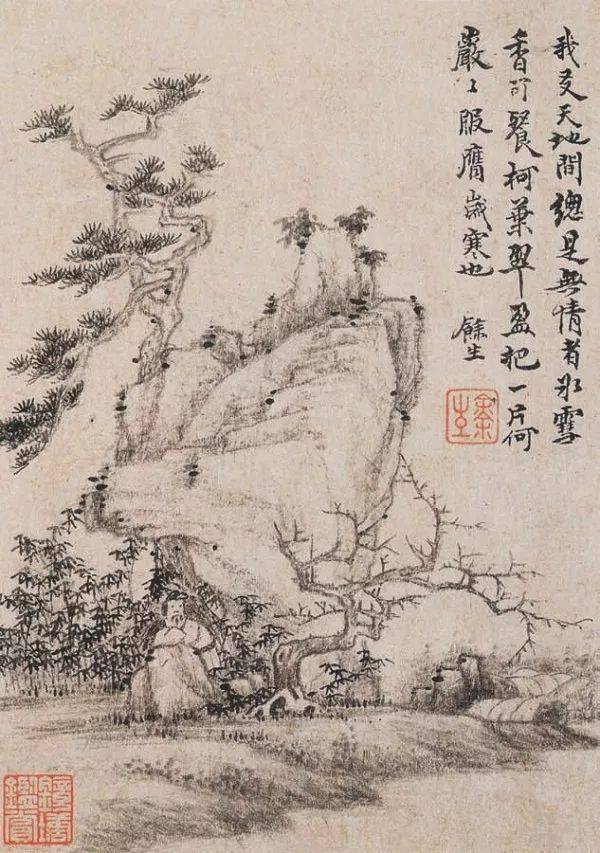 我友天地間總是無情者冰雪
香可餐柯葉翠盈把一片何
巖〻服膺歲寒也
餘生